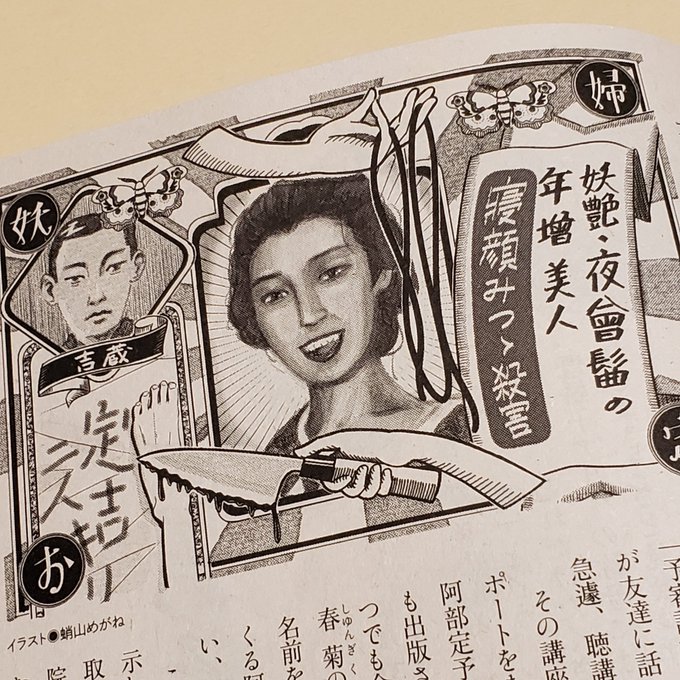 婦
妖艶・夜會髷の
年増 美人
寝顔みつゝ殺害
妖
吉蔵
定吉
二人キリ
お
イラスト●蛸山めがね
が友達に話
急遽、聴講
その講座
ポートを
阿部定予
も出版さ
つでも
春菊の
しゅんぎく
名前を
くる
い、
示
取
院